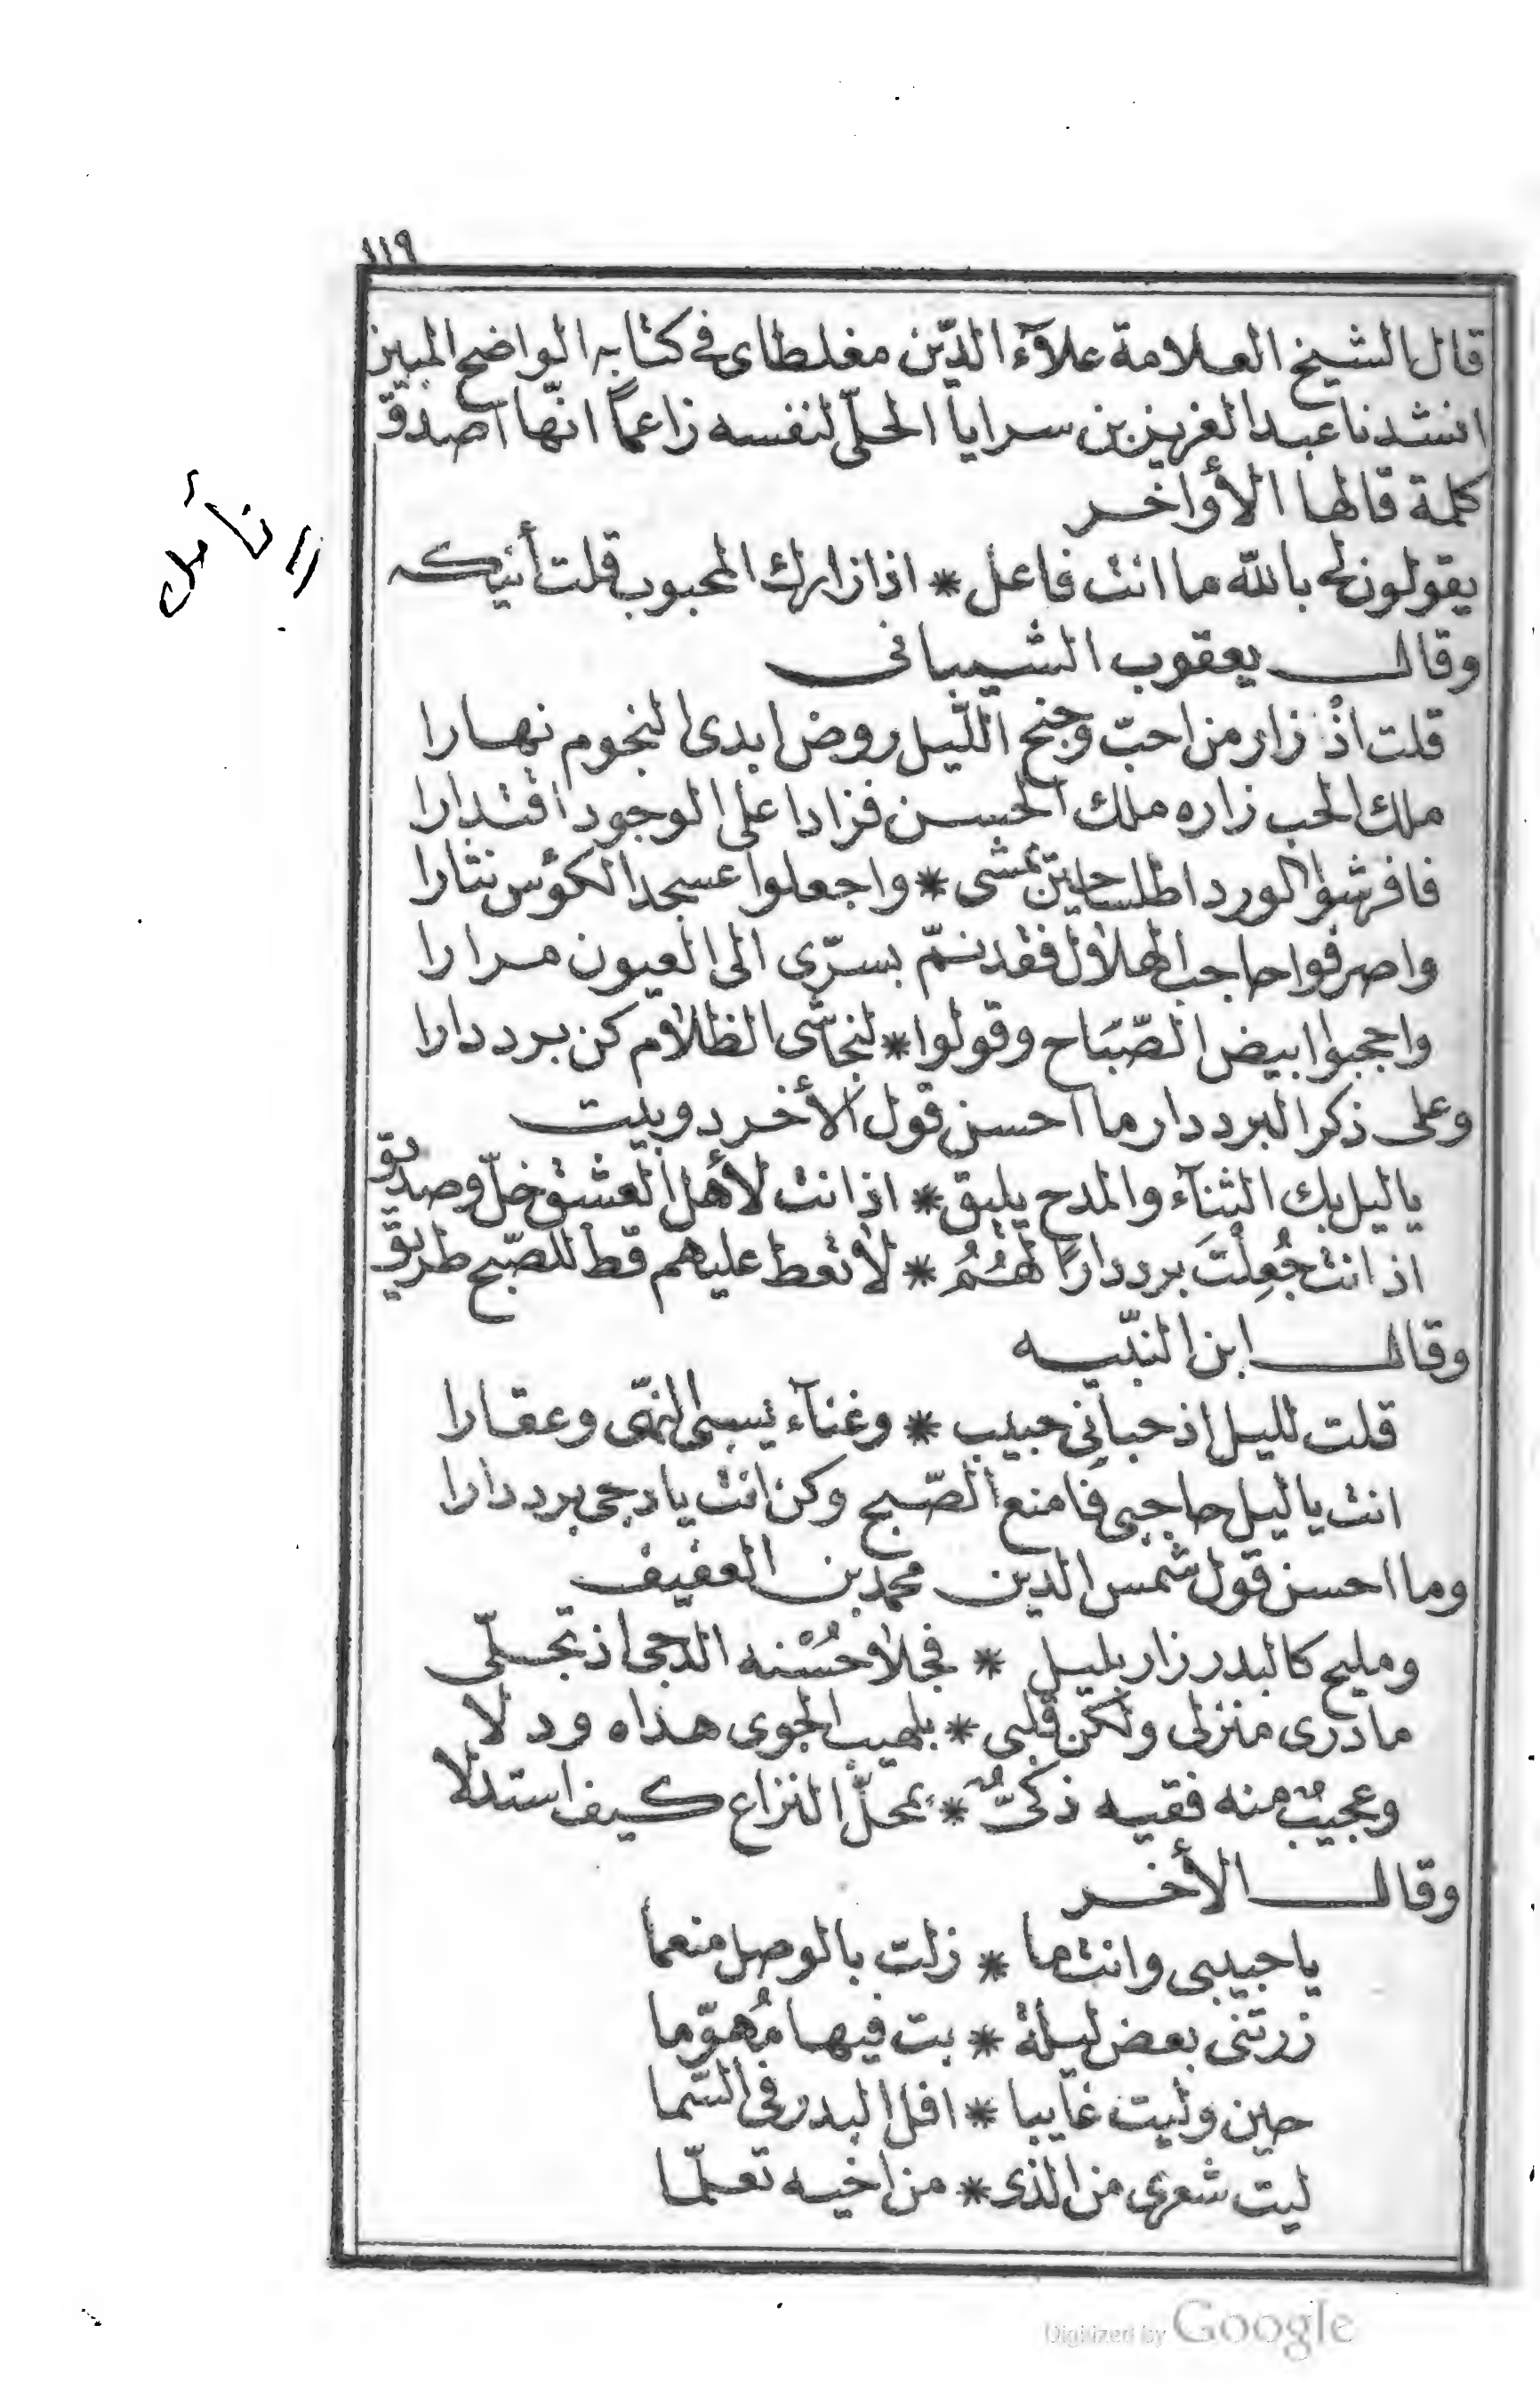 ١١٩
قال الشيخ العلامة علآء الدّين مغلطاى فى كتابه الواضح المبين
انشدنا عبد العزيز بن سرايا الحلّى لنفسه زاعماً انّها اصدق
كلمة قالها الأواخر
يقولون لى بالله ما انت فاعل * اذا زارك المحبوب قلت أنيكه
وقال يعقوب الشيبانى
قلت اذ زار من احبّ وجنح اللّيل روض ابدى النجوم نهارا
ملك الحب زاره ملك الحسن فزادا على الوجود اقتدارا
فافرشوا الورد اطلسا حين تمشى * واجعلوا عسجد الكؤس نثارا
واصرفوا حاجب الهلال فقد نمّ بسرّى الى العيون مرارا
واحجبوا ابيض الصّبَاح وقولوا * لنجاشى الظلام كن برددارا
وعلى ذكر البرددار ما احسن قول الأخر دوبيت
ياليل بك الثنآء والمدح يليق * اذ انت لأهل العشق خلّ وصديق
اذ انت جُعِلْتَ برددارًا لهُمُ * لا تعط عليهم قط للصّبح طريق
وقال ابن النبّيه
قلت لليل اذ حبانِى حبيب * وغنآء يسبى النهّى وعقارا
انت ياليل حاجبى فامنع الصّبح وكن انت يا دجى برددارا
وما احسن قول شمس الدين محمد بن العفيف
ومليح كالبدر زار بليل * فجلا حُسْنه الدّجى اذ تجلّى
ما درى منزلى ولكن قلبى * بلهيب الجوى هداه ودلا
وعجيبٌ منه فقيه ذكىٌّ * بمحلّ النزاع كيف استدلا
وقال الأخر
ياحبيبى وانت ما * زلت بالوصل منعما
زرتنى بعض ليلة * بت فيها مُهوّما
حين وليت غايبا * افل البدر فى السّما
ليت شعرى من الذى * من اخيه تعلّما
Digitized by Google